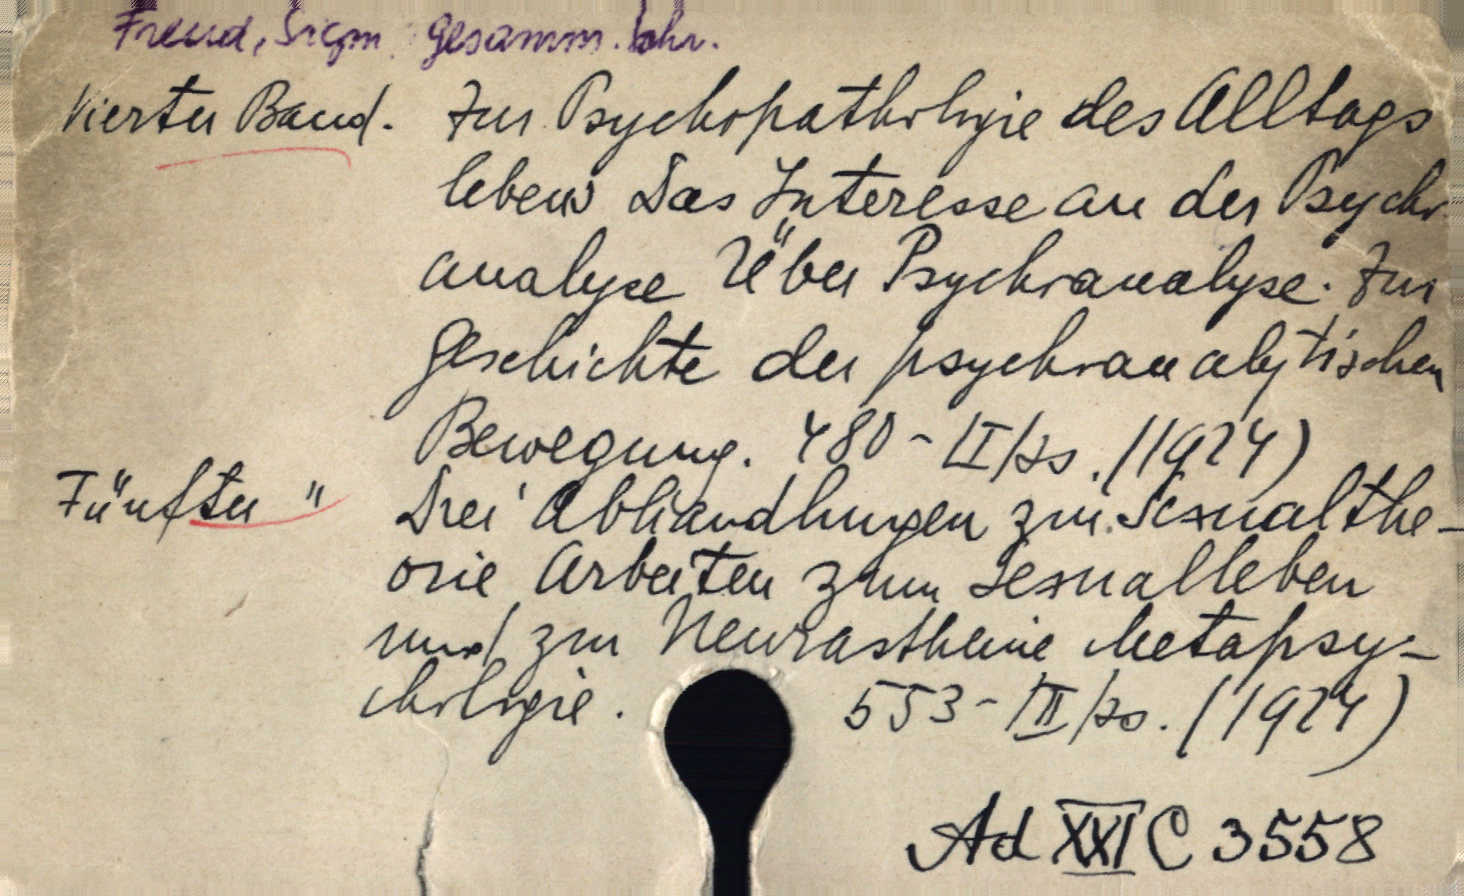 Freud, Sigm. Gesamm. Schr.
Vierter Band. Zur Psychopathologie des Alltags
lebens Das Interesse an der Psycho
analyse Über Psychoanalyse. Zur
Geschichte der psychoanalytischen
Bewegung. 480 - II/ss. (1924)
Fünfter " Drei Abhandlungen zur Sexualthe-
orie Arbeiten zum Sexualleben
und zur Neurasthenie Metapsy-
chologie. 553 - III/ss. (1924)
Ad XXI C 3558